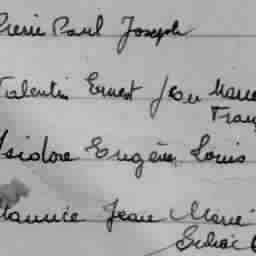 Pierre Paul Joseph
Valentin Ernest Jean Marie
Isidore Eugène Louis
Jean Marie